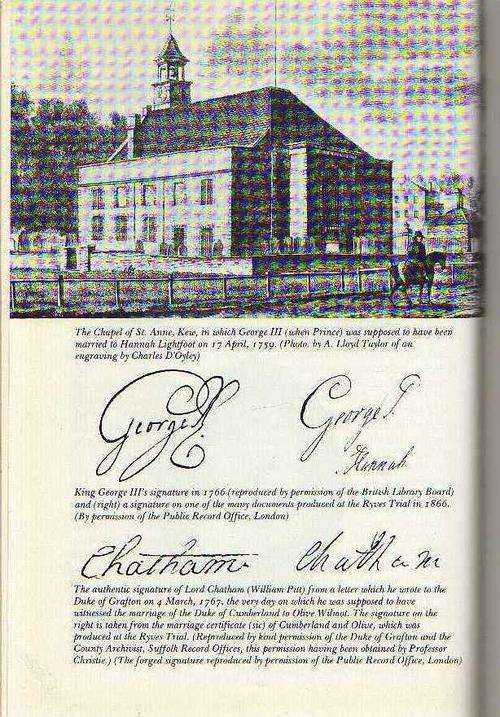 The Chapel of St. Anne, Kew, in which George III (when Prince) was supposed to have been
married to Hannah Lightfoot on 17 April, 1759. (Photo. by A. Lloyd Taylor of an
engraving by Charles D'Oyley)
George R. George P.
Hannah
King George III's signature in 1766 (reproduced by permission of the British Library Board)
and (right) a signature on one of the many documents produced at the Ryves Trial in 1866.
(By permission of the Public Record Office, London)
Chatham. Chatham
The authentic signature of Lord Chatham (William Pitt) from a letter which he wrote to the
Duke of Grafton on 4 March, 1767, the very day on which he was supposed to have
witnessed the marriage of the Duke of Cumberland to Olive Wilmot. The signature on the
right is taken from the marriage certificate (sic) of Cumberland and Olive, which was
produced at the Ryves Trial. (Reproduced by kind permission of the Duke of Grafton and the
County Archivist, Suffolk Record Offices, this permission having been obtained by Professor
Christie.) (The forged signature reproduced by permission of the Public Record Office, London)